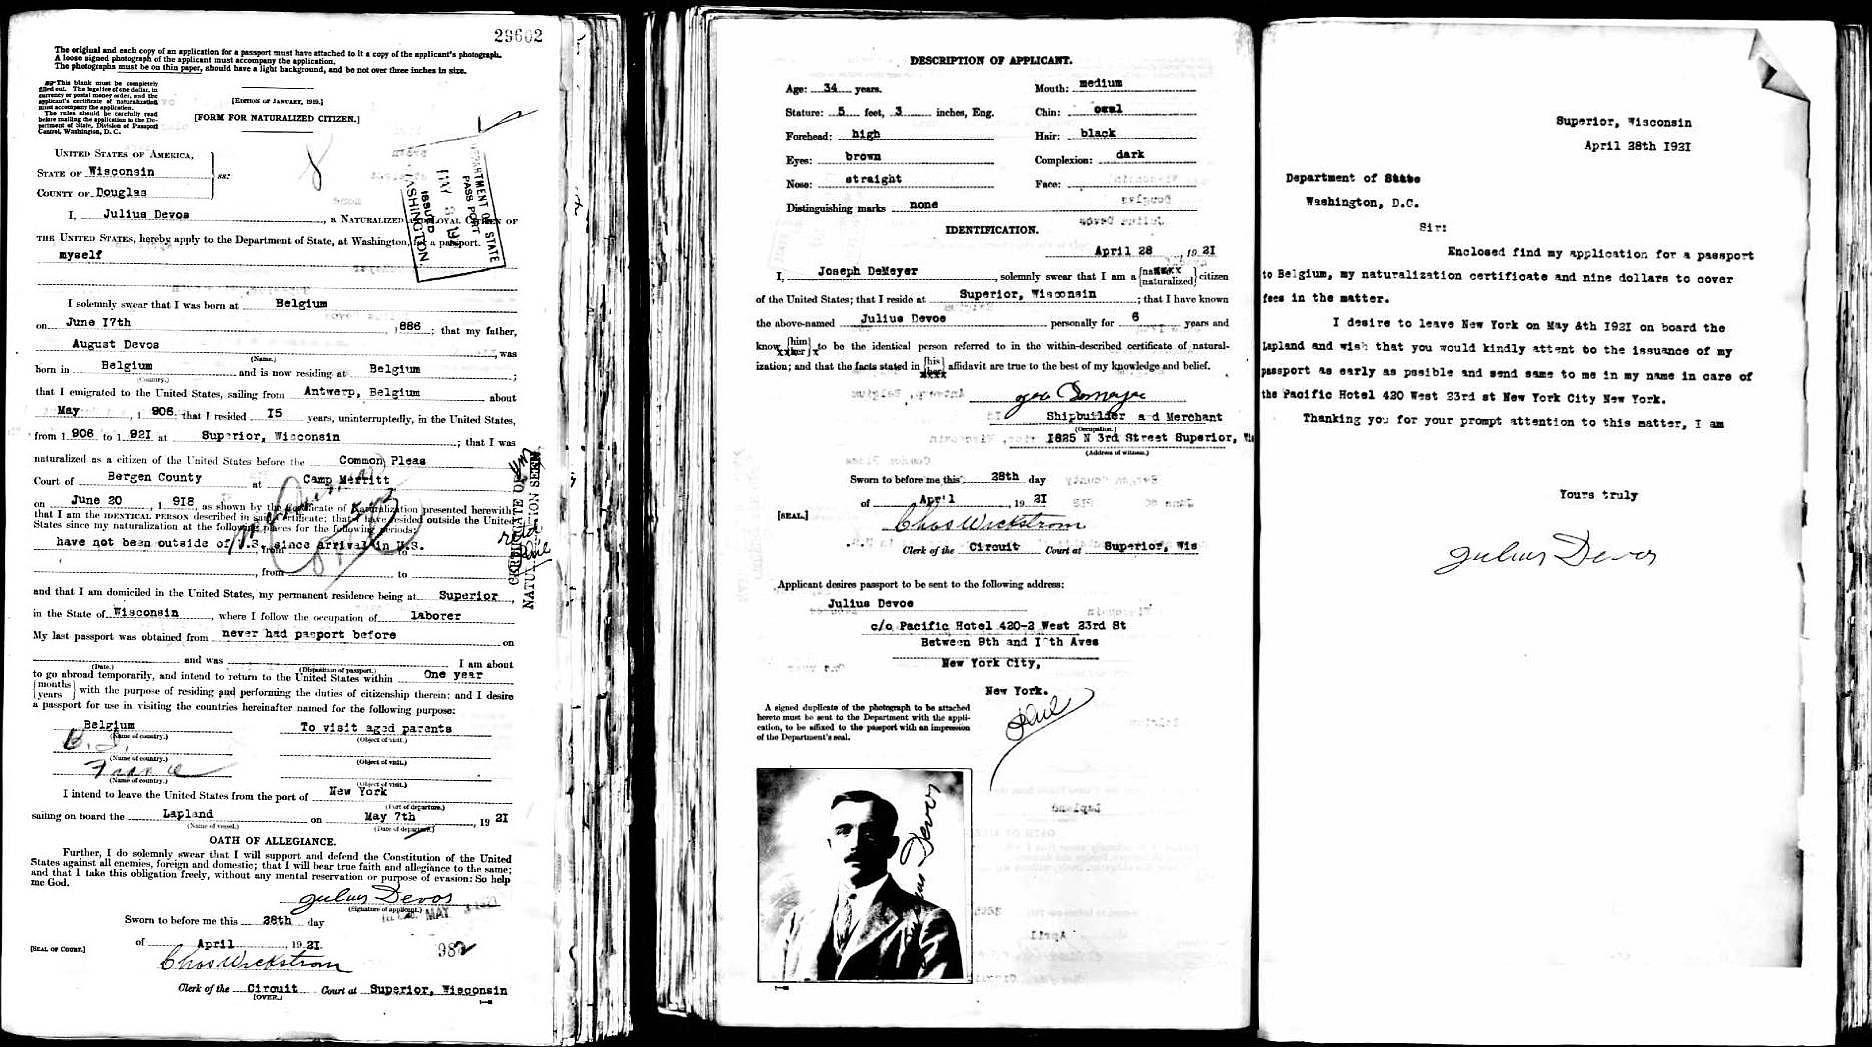 29602
The original and each copy of an application for a passport must have attached to it a copy of the applicant's photograph.
A loose signed photograph of the applicant must accompany the application.
The photographs must be on thin paper, should have a light background, and be not over three inches in size.
This blank must be completely
filled out. The legal fee of one dollar, in
currency or postal money order, and the
applicant's certificate of naturalization
must accompany the application.
The rules should be carefully read
before mailing the application to the De-
partment of State, Division of Passport
Control, Washington, D. C.
[EDITION OF JANUARY, 1919.]
[FORM FOR NATURALIZED CITIZEN.]
UNITED STATES OF AMERICA,
STATE OF Wisconsin
COUNTY OF Douglas
ss:
DEPARTMENT OF STATE
PASSPORT
ISSUED
WASHINGTON
I, Julius Devos, a NATURALIZED AND LOYAL CITIZEN OF
THE UNITED STATES, hereby apply to the Department of State, at Washington, for a passport.
myself
I solemnly swear that I was born at Belgium
on June I7th, 1886; that my father,
August Devos was
(Name.)
born in Belgium and is now residing at Belgium;
(Country.)
that I emigrated to the United States, sailing from Antwerp, Belgium about
May, 1 906. that I resided I5 years, uninterruptedly, in the United States,
from 1 906 to 1 92I at Superior, Wisconsin; that I was
naturalized as a citizen of the United States before the Common Pleas
Court of Bergen County at Camp Merritt
on June 20, 1 9I8, as shown by the Certificate of Naturalization presented herewith;
that I am the IDENTICAL PERSON described in said Certificate; that I have resided outside the United
States since my naturalization at the following places for the following periods:
have not been outside of U.S. since arrival in U.S.
from to
and that I am domiciled in the United States, my permanent residence being at Superior,
in the State of Wisconsin, where I follow the occupation of laborer
My last passport was obtained from never had pasport before on
and was I am about
(Date.) (Disposition of passport.)
to go abroad temporarily, and intend to return to the United States within One year
{months years} with the purpose of residing and performing the duties of citizenship therein; and I desire
a passport for use in visiting the countries hereinafter named for the following purpose:
Belgium To visit aged parents
(Name of country.) (Object of visit.)
(Name of country.) (Object of visit.)
France
(Name of country.) (Object of visit.)
I intend to leave the United States from the port of New York
(Port of departure.)
sailing on board the Lapland on May 7th, 19 2I
(Name of vessel.) (Date of departure.)
OATH OF ALLEGIANCE.
Further, I do solemnly swear that I will support and defend the Constitution of the United
States against all enemies, foreign and domestic; that I will bear true faith and allegiance to the same;
and that I take this obligation freely, without any mental reservation or purpose of evasion: So help
me God.
Julius Devos
(Signature of applicant.)
Sworn to before me this 28th day
of April 19 2I.
[SEAL OF COURT.]
Chas Wickstrom
Clerk of the Circuit Court at Superior, Wisconsin
[OVER.]
DESCRIPTION OF APPLICANT.
Age: 34 years. Mouth: medium
Stature: 5 feet, 3 inches, Eng. Chin: oval
Forehead: high Hair: black
Eyes: brown Complexion: dark
Nose: straight Face:
Distinguishing marks none
IDENTIFICATION.
April 28, 19 2I
I, Joseph DeMeyer, solemnly swear that I am a {naturalized} citizen
of the United States; that I reside at Superior, Wisconsin; that I have known
the above-named Julius Devos personally for 6 years and
know {him} to be the identical person referred to in the within-described certificate of natural-
ization; and that the facts stated in {his} affidavit are true to the best of my knowledge and belief.
Shipbuilder a d Merchant
(Occupation.)
I825 N 3rd Street Superior, Wis
(Address of witness.)
Sworn to before me this 28th day
of Apr'l, 19 2I
[SEAL.]
Chas Wickstrom
Clerk of the Circuit Court at Superior, Wis
Applicant desires passport to be sent to the following address:
Julius Devos
c/o Pacific Hotel 420-2 West 23rd St
Between 9th and I th Aves
New York City,
New York.
A signed duplicate of the photograph to be attached
hereto must be sent to the Department with the appli-
cation, to be affixed to the passport with an impression
of the Department's seal.
Devos
Superior, Wisconsin
April 28th I92I
Department of State
Washington, D.C.
Sir:
Enclosed find my application for a passport
to Belgium, my naturalization certificate and nine dollars to cover
fees in the matter.
I desire to leave New York on May &th I92I on board the
Lapland and wish that you would kindly attent to the issuance of my
passport as early as pssible and send same to me in my name in care of
the Pacific Hotel 420 West 23rd st New York City New York.
Thanking you for your prompt attention to this matter, I am
Yours truly
Julius Devos